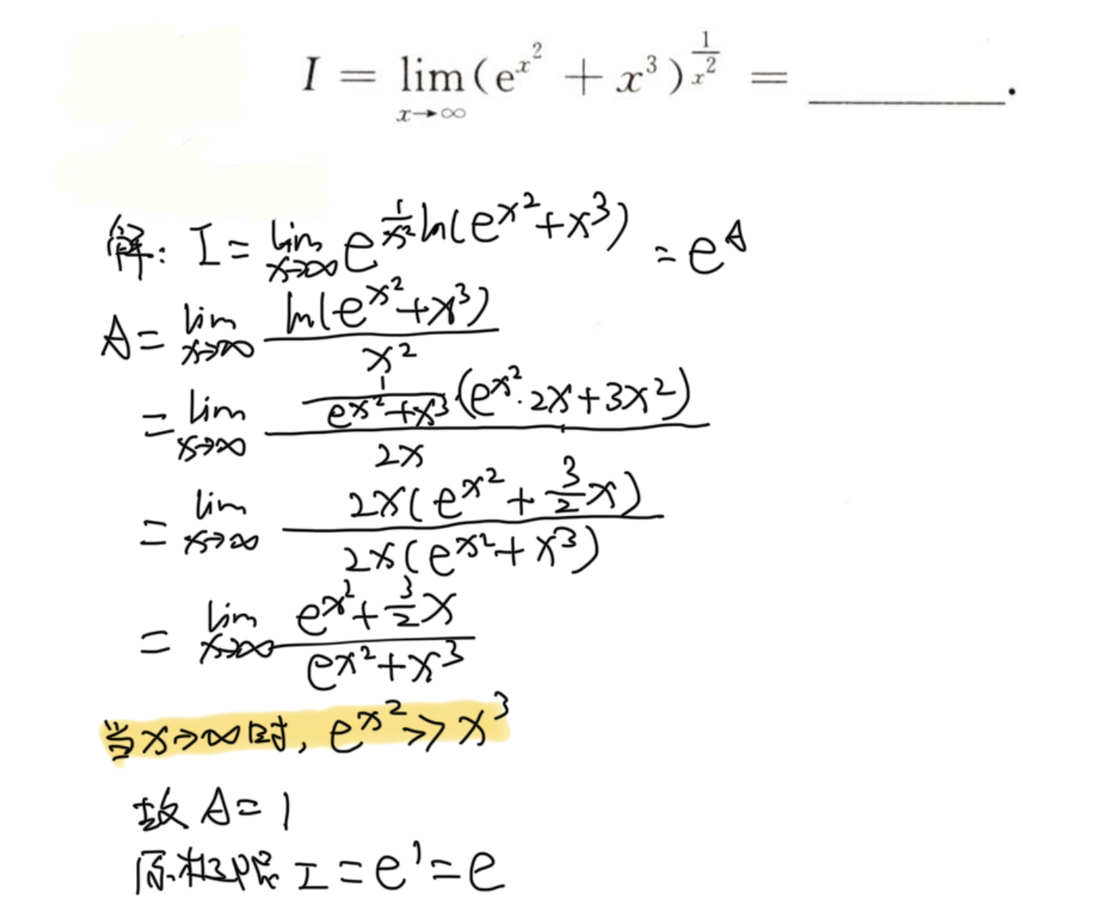 I = lim_{x→∞} (e^{x^2} + x^3)^{\frac{1}{x^2}} = ________.
解: I = lim_{x→∞} e^{\frac{1}{x^2} ln(e^{x^2}+x^3)} = e^A
A = lim_{x→∞} \frac{ln(e^{x^2}+x^3)}{x^2}
= lim_{x→∞} \frac{\frac{1}{e^{x^2}+x^3}(e^{x^2}·2x+3x^2)}{2x}
= lim_{x→∞} \frac{2x(e^{x^2}+\frac{3}{2}x)}{2x(e^{x^2}+x^3)}
= lim_{x→∞} \frac{e^{x^2}+\frac{3}{2}x}{e^{x^2}+x^3}
当x→∞时, e^{x^2} >> x^3
故 A = 1
原极限 I = e^1 = e